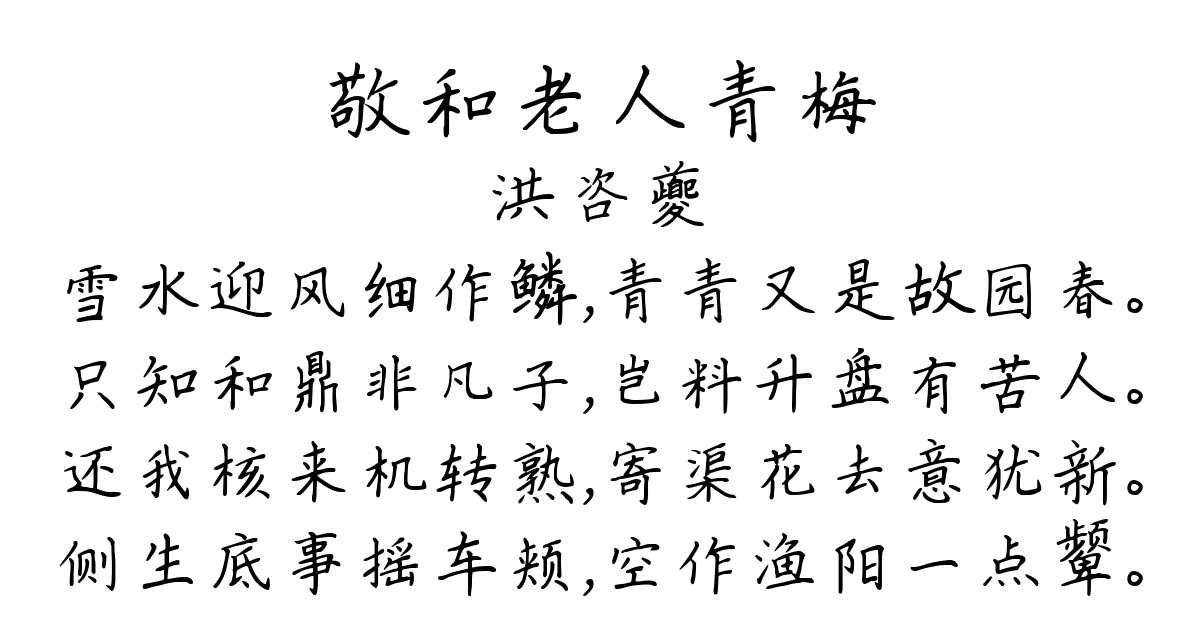 敬和老人青梅
洪咨夔
雪水迎风细作鳞,青青又是故园春。
只知和鼎非凡子,岂料升盘有苦人。
还我核来机转熟,寄渠花去意犹新。
侧生底事摇车颊,空作渔阳一点颦。